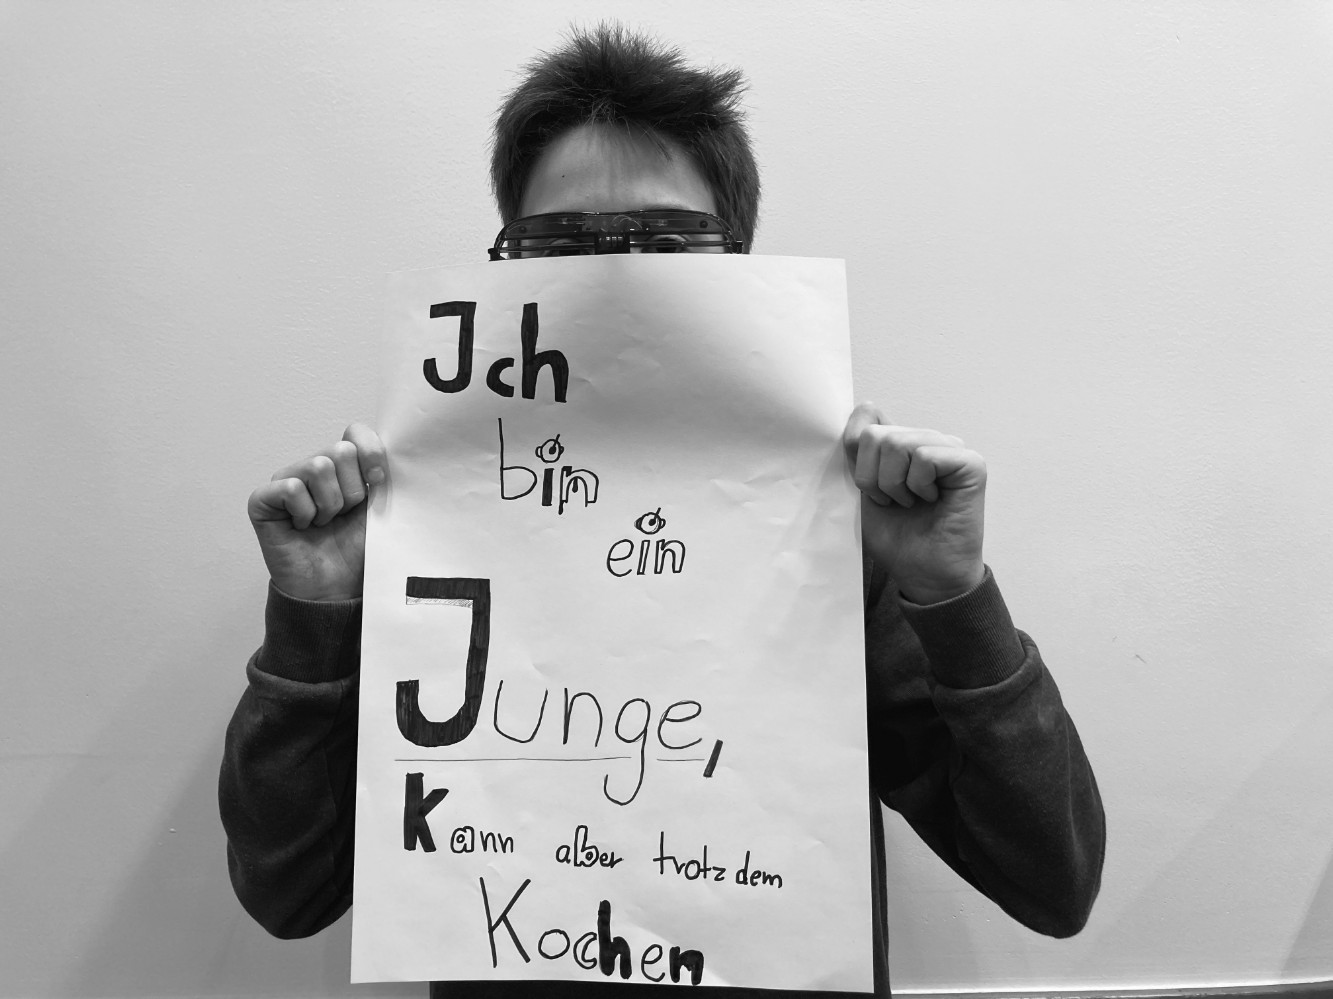 Jch
bin
ein
Junge,
Kann aber trotzdem
Kochen